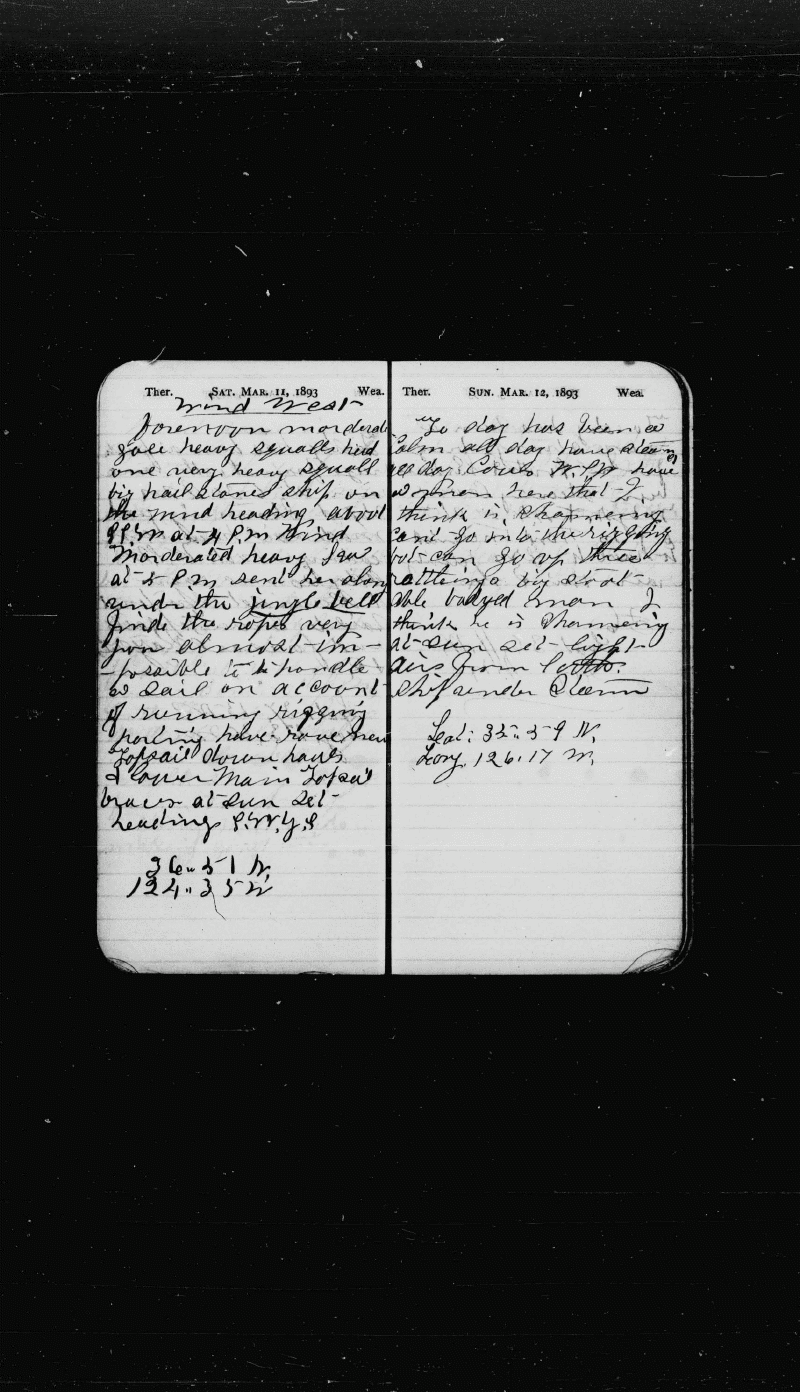 Ther. SAT. MAR. 11, 1893 Wea.
Wind West
Forenoon morderate
gale heavy squalls had
one very heavy squall
big hail stones ship on
the wind heading about
at 4 P.M Wind
Morderated heavy Sea
at 5 P.M sent her along
under the jingle bell
finde the ropes very
poor almost im-
-possible to handle
a sail on account
of running rigging
parting have rove new
Topsail down hauls
& lower Main Topsail
braces at sun set
heading
36.. 51 N.
124.. 35 W
Ther. SUN. MAR. 12, 1893 Wea.
To day has been a
Calm all day have steam
all day Cours have
a man here that I
think is Shamening
cant go into the rigging
but can go up three
a big stout
able bodyed man I
think he is Shamening
at sun set light
airs from
Ship under Steam
Lat: 35.. 59 N.
Long. 126.17 W.